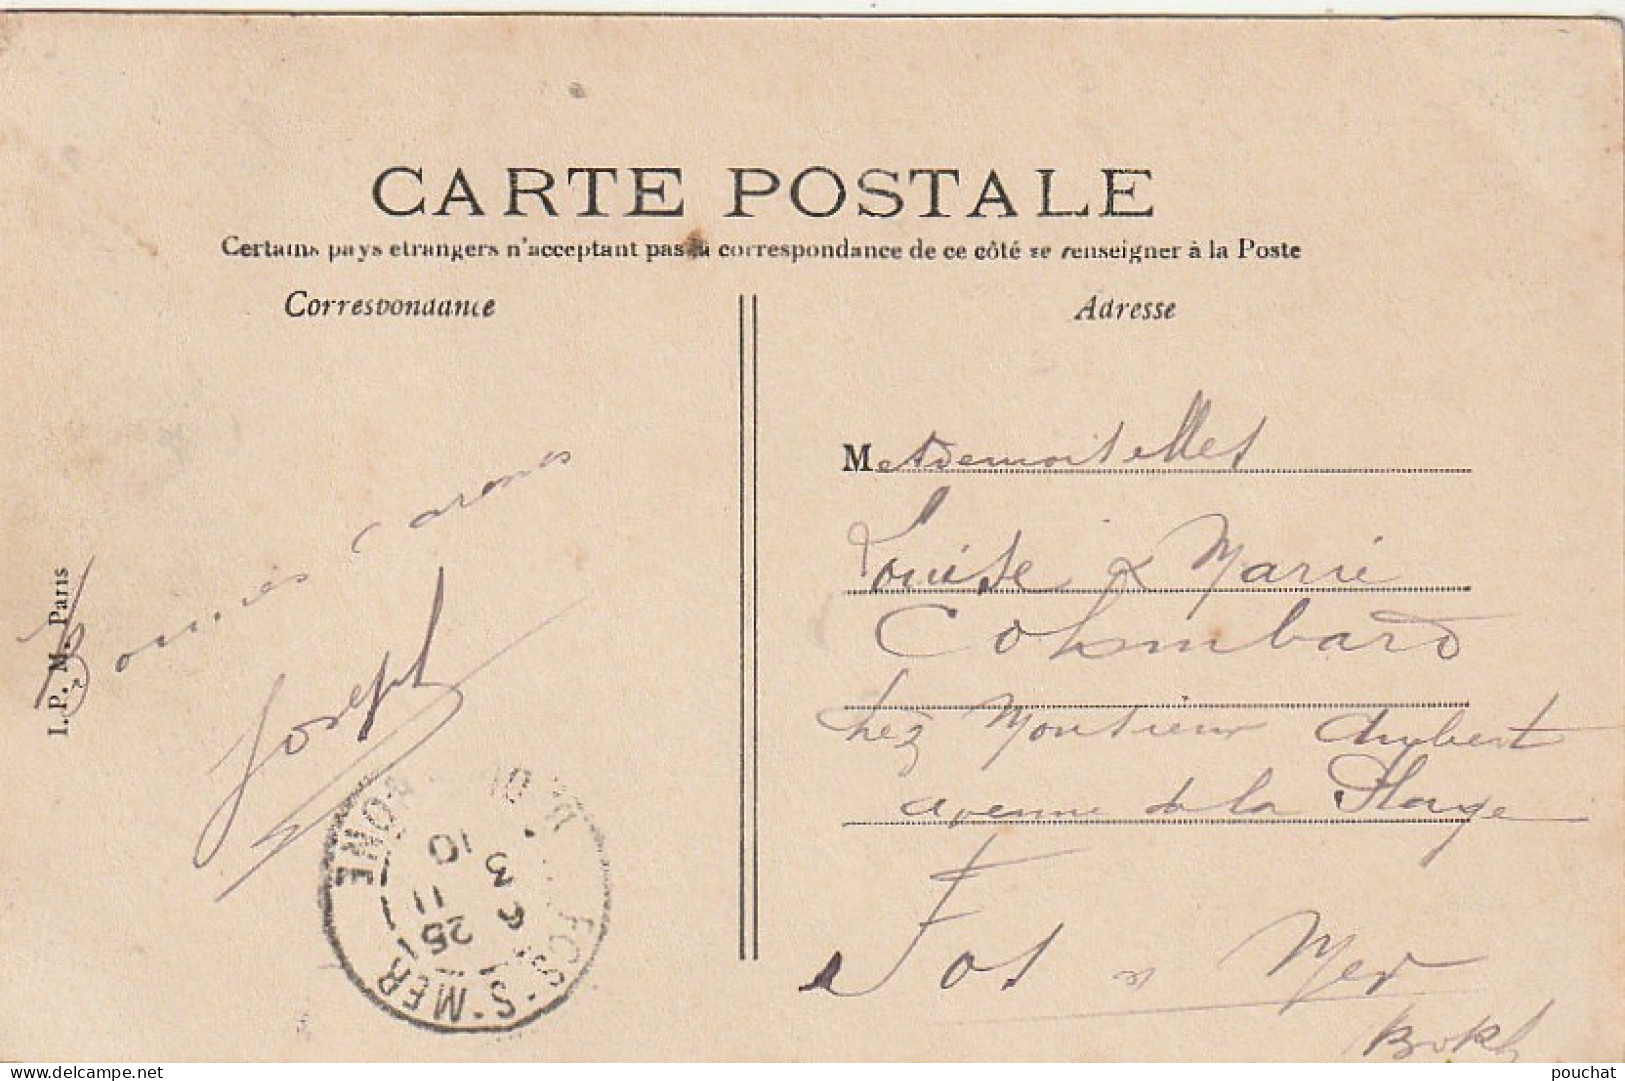 CARTE POSTALE
Certains pays etrangers n'acceptant pas la correspondance de ce côté se renseigner à la Poste
Correspondance
Adresse
I. P. M. Paris
Bonnes Caresses
Joseph
Mesdemoiselles
Louise & Marie
Colombard
chez Monsieur Aubert
avenue de la Plage
Fos s/ Mer
B. d. Rh
FOS-S-MER
25
11
10
delcampe.net
pouchat